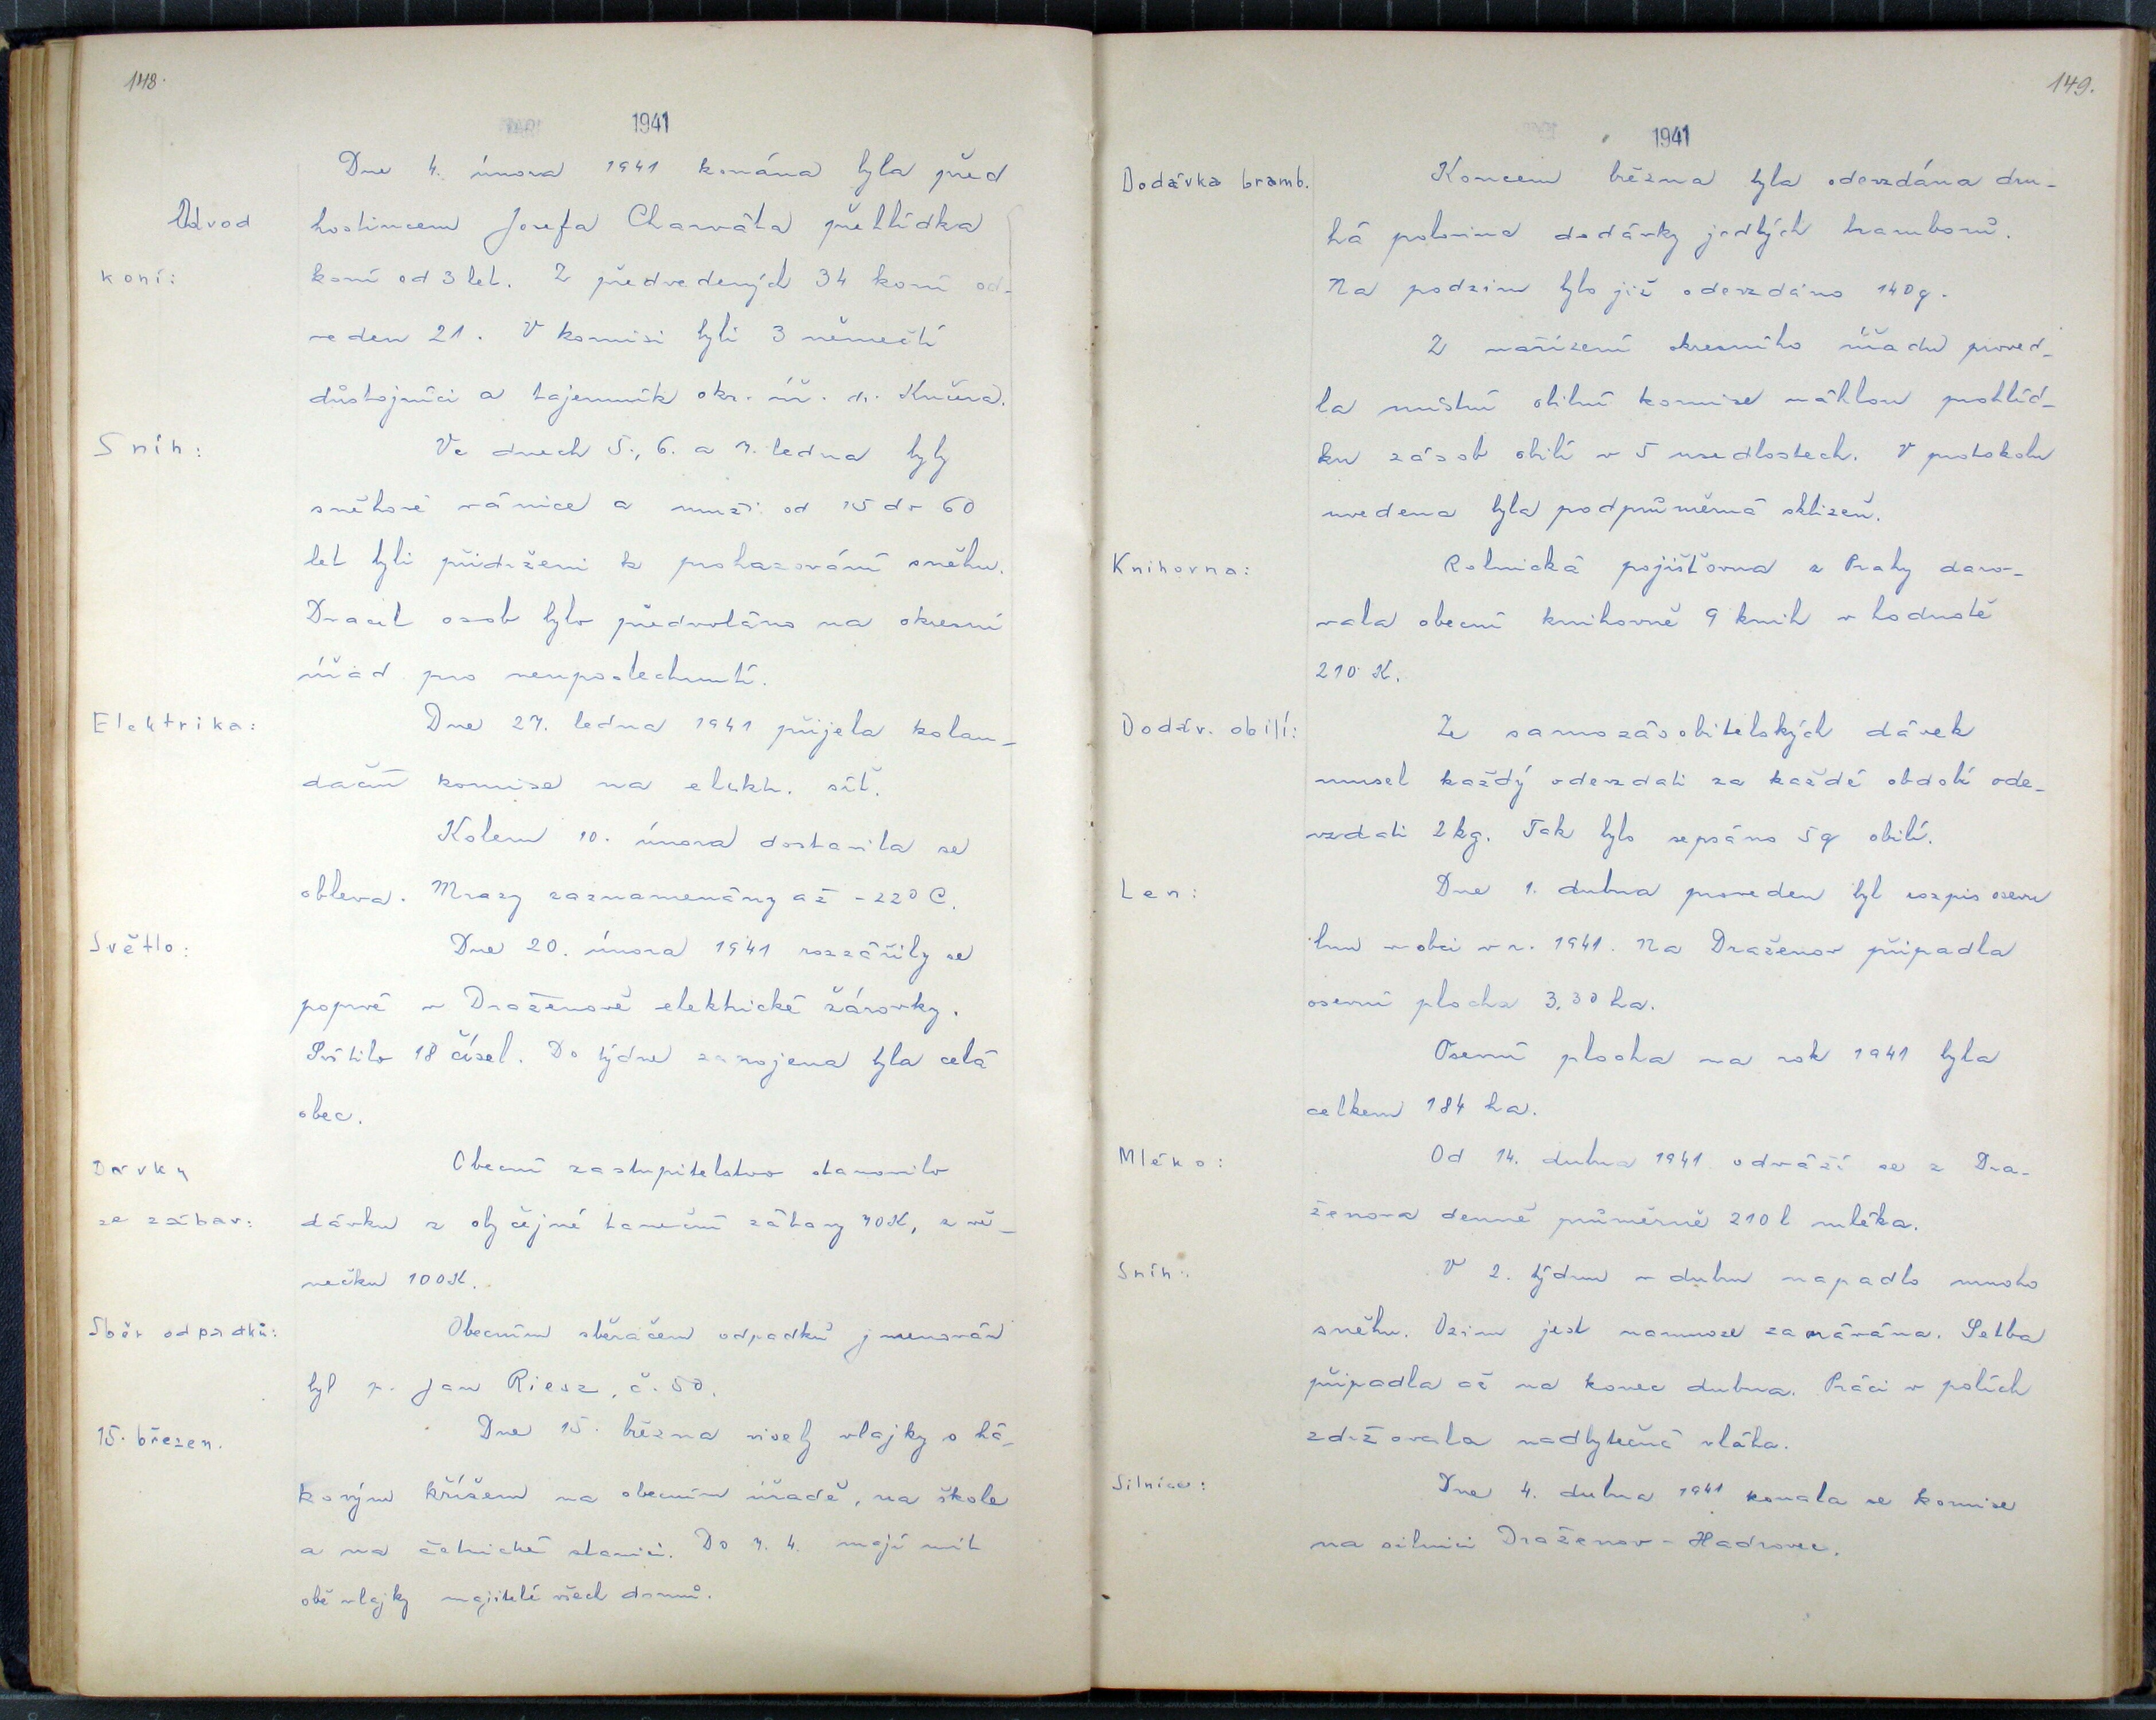 148.
1941
Dne 4. února 1941 konána byla před
Odvod hostincem Josefa Charváta přehlídka
koní: koní od 3 let. Z předvedených 34 koní od-
veden 21. V komisi byli 3 němečtí
důstojníci a tajemník okr. úř. p. Kučera.
Sníh: Ve dnech 5., 6. a 7. ledna byly
sněhové vánice a muži od 15 do 60
let byli přidrženi k prohazování sněhu.
Dvacet osob bylo předvoláno na okresní
úřad pro neuposlechnutí.
Elektrika: Dne 27. ledna 1941 přijela kolau-
dační komise na elektr. síť.
Kolem 10. února dostavila se
obleva. Mrazy zaznamenány až -22° C.
Světlo: Dne 20. února 1941 rozzářily se
poprvé v Draženově elektrické žárovky.
Svítilo 18 čísel. Do týdne zapojena byla celá
obec.
Dávky Obecní zastupitelstvo stanovilo
ze zábav: dávku z obyčejné taneční zábavy 70 K, z vě-
nečku 100 K.
Sběr odpadků: Obecním sběračem odpadků jmenován
byl p. Jan Riesz, č. 50.
15. březen. Dne 15. března visely vlajky s há-
kovým křížem na obecním úřadě, na škole
a na četnické stanici. Do 7. 4. mají mít
obě vlajky majitelé všech domů.
149.
1941
Dodávka bramb. Koncem března byla odevzdána dru-
há polovina dodávky jedlých bramborů.
Na podzim bylo již odevzdáno 140 q.
Z nařízení okresního úřadu proved-
la místní obilní komise náhlou prohlíd-
ku zásob obilí v 5 usedlostech. V protokolu
uvedena byla podprůměrná sklizeň.
Knihovna: Rolnická pojišťovna z Prahy daro-
vala obecní knihovně 9 knih v hodnotě
210 K.
Dodáv. obilí: Ze samozásobitelských dávek
musel každý odevzdati za každé období ode-
vzdati 2 kg. Tak bylo sepsáno 5 q obilí.
Len: Dne 1. dubna proveden byl rozpis osevu
lnu v obci v r. 1941. Na Draženov připadla
osevní plocha 3,30 ha.
Osevní plocha na rok 1941 byla
celkem 184 ha.
Mléko: Od 14. dubna 1941 odváží se z Dra-
ženova denně průměrně 210 l mléka.
Sníh: V 2. týdnu v dubnu napadlo mnoho
sněhu. Ozim jest namnoze zaorávána. Setba
připadla až na konec dubna. Práci v polích
zdržovala nadbytečná vláha.
Silnice: Dne 4. dubna 1941 konala se komise
na silnici Draženov - Hadrovec.